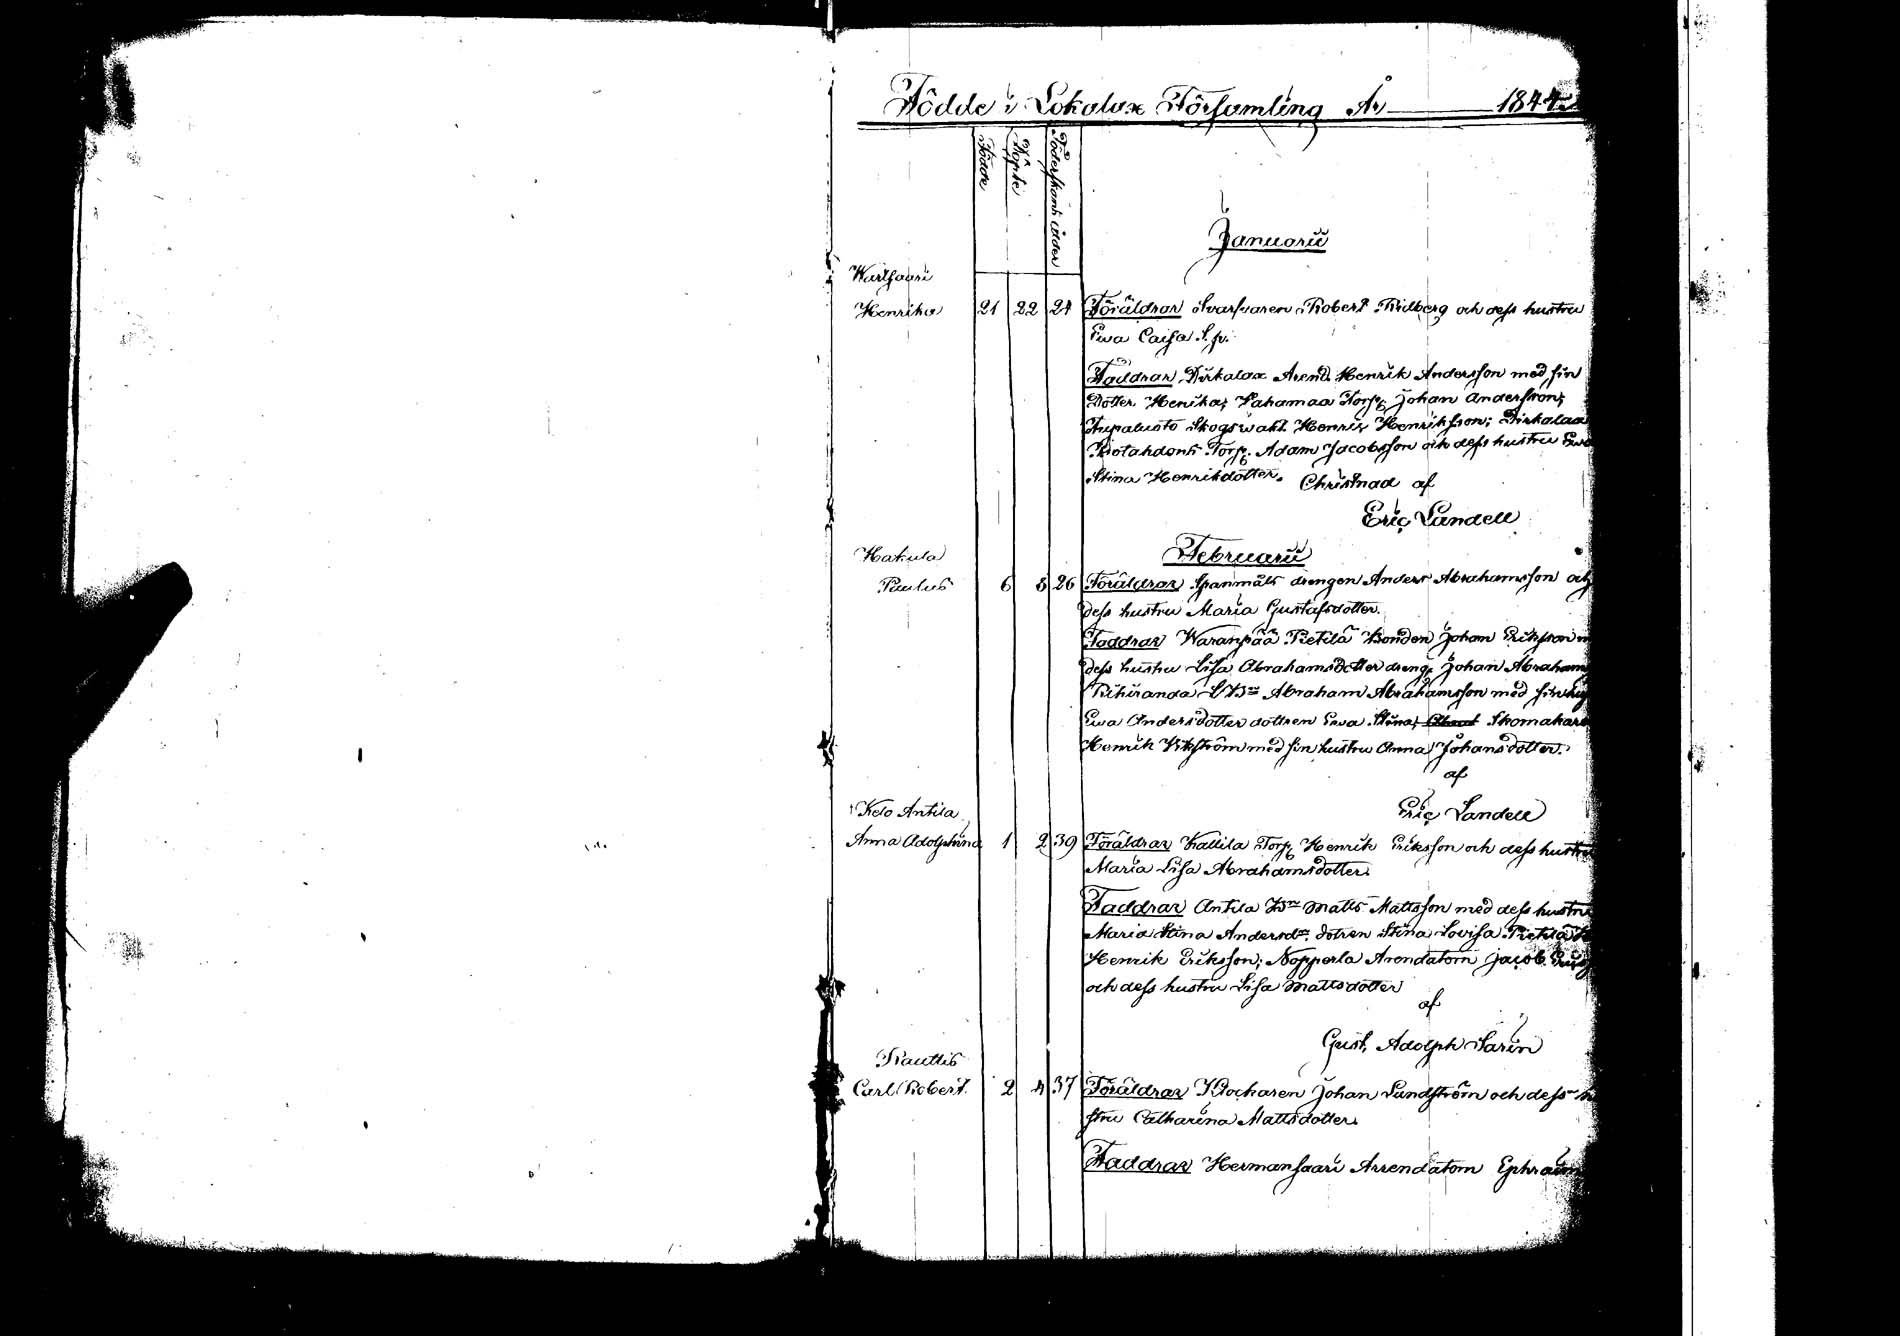 Födde i Lokalax Församling År 1844
Födde
Döpte
Föderskans ålder
Januarii
Warlsaari
Henrika 21 22 24 Föräldrar Svarfvaren Robert Fridberg och dess hustru
Ewa Caisa S. p.
Faddrar Dirkalax Arend. Henrik Andersson med sin
Dotter Henika; Lahamaa Torp. Johan Andersson;
Skogswakt. Henric Henriksson; Dirkalax
Torp. Adam Jacobsson och dess hustru Ewa
Stina Henriksdotter. Christnad af
Eric Landell
Februarii
Hakula
Paulus 6 8 26 Föräldrar Spanmåls drengen Anders Abrahamsson och
dess hustru Maria Gustafsdotter.
Faddrar Waranpää Pietilä Bonden Johan Eriksson
dess hustru Lisa Abrahamsdotter dreng. Johan Abraham
Rihiranda Abraham Abrahamsson med sin
Ewa Andersdotter dottren Ewa Stina; Skomakar
Henrik Wikström med sin hustru Anna Johansdotter.
af
Eric Landell
Kelo Antila
Anna Adolphina 1 2 39 Föräldrar Kallila Torp. Henrik Eriksson och dess hustru
Maria Lisa Abrahamsdotter.
Faddrar Antila Bn Matts Mattsson med dess hustru
Maria Stina Andersdr. dotren Stina Lovisa Pietilä
Henrik Eriksson; Nopperla Arendatorn Jacob
och dess hustru Lisa Mattsdotter
af
Gust. Adolph Sarin
Rauttis
Carl Robert 2 4 37 Föräldrar Klockaren Johan Landström och dess hu
stru Catharina Mattsdotter.
Faddrar Hermansaari Arrendatorn Ephraim